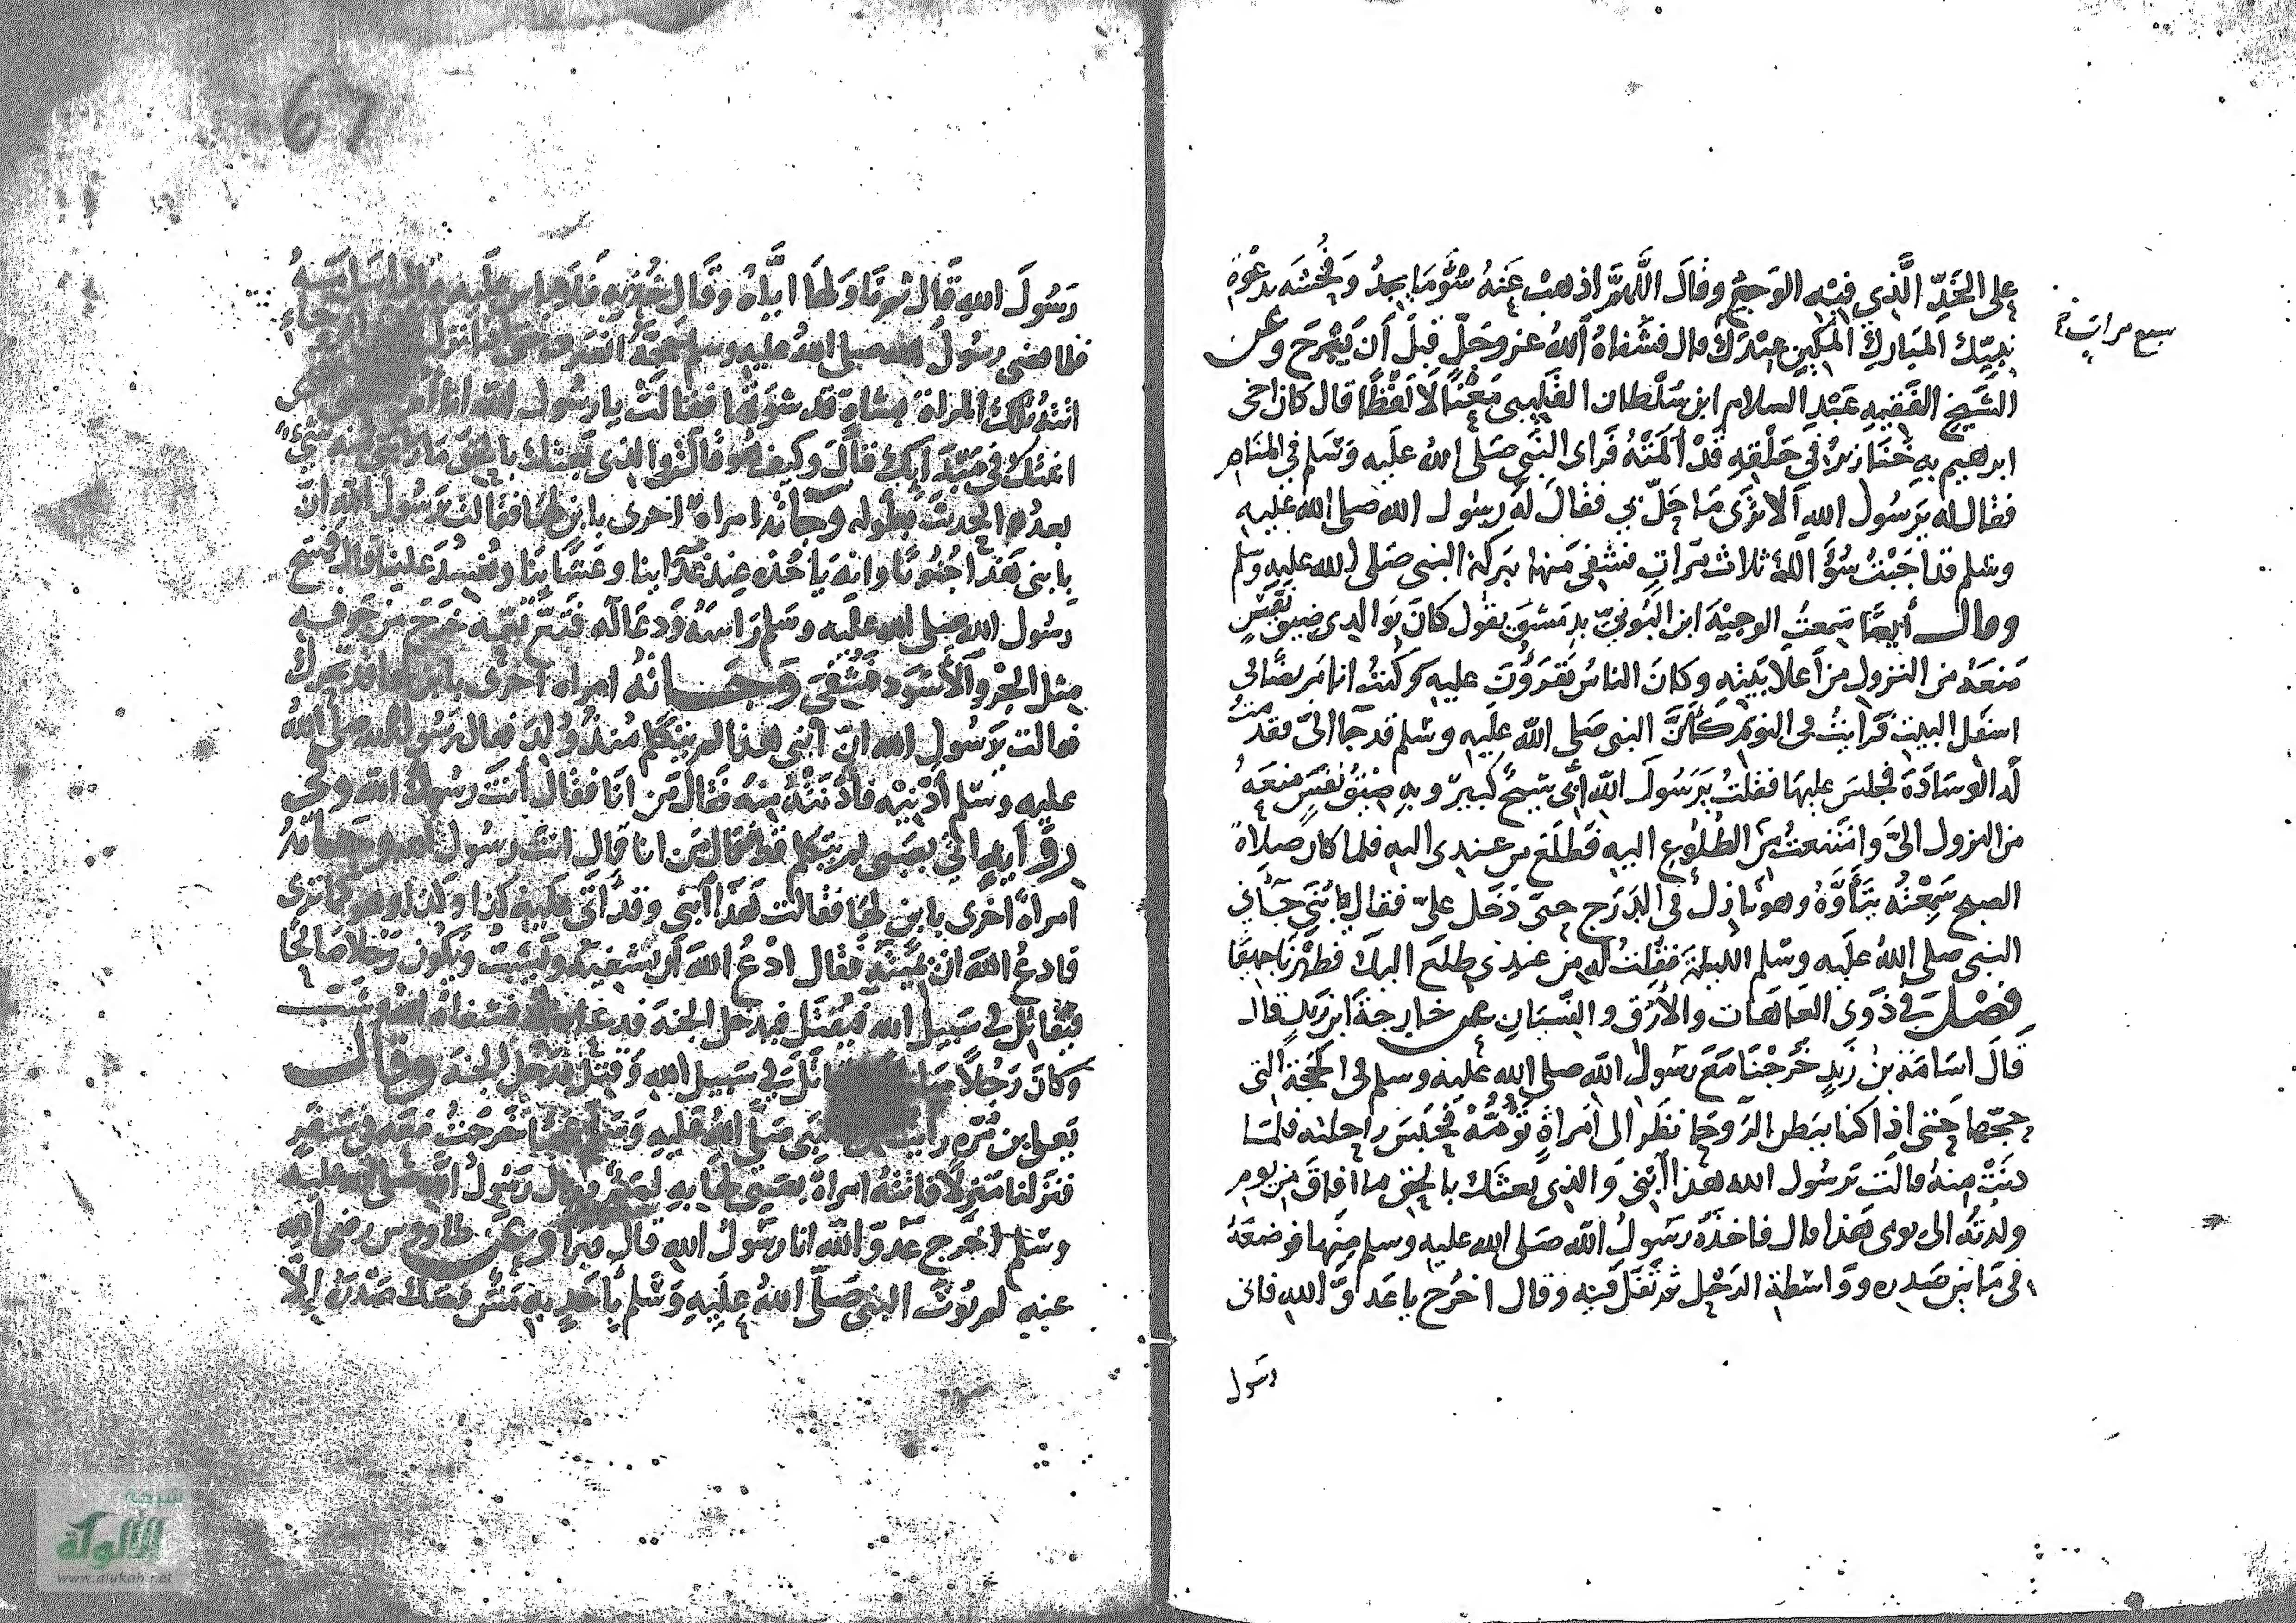 على الخَدِّ الَّذِي فِيْهِ الوَجَعُ وقَالَ اللَّهُمَّ اذهبْ عَنهُ سُوْءَمَا يجدُ وَفُحْشَه بدعْوة
سبع مرات
نبِيّك المبَاركِ المَكِينِ عِنْدَكَ قال فشَفاهُ اللهُ عز وجَلّ قبلَ أن يَبْرَحَ وعن
الشيخ الفَقِيهِ عَبْدِ السلام ابن سُلْطان القَلِيبى مَعْنًا لَا لَفْظًا قال كان اخى
ابرهيم بِهِ خَنَازيرُ في حَلْقِهِ قدْ آلمَتْهُ فَرأى النَّبى صَلى اللهُ عليه وَسَلم في المنَام
فقال له يَرَسُول اللهِ ألا تَرَى مَا حَلّ بي فقَالَ لَه رسُول الله صلى الله عليه
وسَلم قد اجَبْتُ سُؤَالَكَ ثلاث مَرّاتٍ فشفى مَنهَا ببَركة النبى صَلى الله عليه وسَلم
وقال أيضًا سَمِعتُ الوجيْهَ ابن البُونيّ بدِمَشق يقول كانَ بوَالدِى ضِيق نَفَسٍ
مَنعَهُ من النزول من أعلا بَيتِهِ وكانَ الناسُ يَقرَؤُنَ عليه وكنتُ انا مَريضًا في
اسفل البيتِ فَرأيتُ في النوم كأنَّ النبى صَلى الله عليه وسَلم قد جَآ الىّ فقدمتُ
لَه الوسَادَةَ فجلسَ عليهَا فقلتُ يَرَسُولَ الله أبى شيخٌ كبيرٌ وبهِ ضِيْقُ نفَسٍ مَنعَهُ
من النزول اليَّ وامتَنعتُ من الطُلُوعِ اليه فَطلَعَ من عندى اليه فلما كان صلاة
الصبح سَمِعْتُه يتَأَوَّهُ وهو نازِل في الدَرَج حتى دَخَل عليّ فقال يا بُنَيّ جآني
النبى صلى اللهُ عليه وسَلم الليلة فقُلتُ لَه من عندى طلَعَ اليكَ فظهَرنا جميعًا
فصْل في ذَوى العَاهَات والأرَق والنّسْيَانِ عن خارجةَ ابن زَيدٍ قال
قالَ اسَامَة بنُ زَيدٍ خَرَجْنَا مَعَ رَسُول الله صلى الله عليه وسلم في الحَجّة التى
حجّها حَتى اذا كنا ببَطن الرَّوحَا نظَر الى امَراةٍ تَؤمُّهُ فَحَبَسَ راحلته فلمّا
دنَتْ مِنهُ قالت يَرسُول الله هَذا ابْنى وَالذى بَعثَك بالحق ما افاقَ من يوم
ولدْتُه الى يومى هَذا قال فاخذَهُ رَسُولُ الله صَلى الله عليه وسلم مِنها فوضَعَهُ
في مَا بَين صَدره ووَاسْطة الرَحْل ثم تفَل في فيه وقال اخرُج يا عَدوَّ الله فانى
رسول
67
رَسُولَ اللهِ قَال ثم نَاوَلَهَا ايّاهُ وقَال خُذِيهِ فَلَا بَاس عليه قال اسَامَة
فلما قضى رسُولُ الله صلى اللهُ عليه وسلم حجَّهُ انصَرف حتى اذا نزَل
اتتهُ تلك المراة بشاةٍ قد شَوَتْها فقالَتْ يا رسُول الله انا أم
اتيتك في مبتدَايك قالَ وكيف هُو قالَتْ والذى بَعثك بالحقِ مَا رابَنى منه شىء
بعدُ الحديث بطوله وجَآتهُ امراةٌ اخرى بابن لهَا فقالت يَرَسُول الله انّ
بابنى هَذا جُنُونًا وانهُ يَاخُذه عِند غَدَآينا وعَشَاينَا ويُفسدَ علينا قال فمسَح
رسُول الله صلى الله عليه وسَلم رَاسَهُ وَدعَا لَه فَثَعَّ ثعّةً خرَج من جَوفه
مثل الجَرْوِ الأَسْوَد فشُفىَ وجَآتهُ امراة اخرى بابن لها قد تحرّك
فقالت يَرسُول الله انّ ابنى هذا لم يتكلم مُنذُ وُلِدَ فقال رسُول الله صلى اللهُ
عليه وسَلم أَدْنِيْهِ فأدنَتهُ مِنهُ فقَالَ مَن انَا فقَالَ أنتَ رَسُولُ الله وفى
رِوَايةٍ اتى بصَبى لم يتكلم قَط فقَال مَن انا قَال انتَ رسُول الله وجَآتهُ
امراة اخرى بابن لهَا فقالت هَذا ابنى وقد أتى عليه كذا وكذا وهو كما ترى
فادعُ الله انْ يُمِيتَه فقال ادْعُ اللهَ أن يشفيَهُ ويَشِبَّ ويكون رَجلًا صَالحًا
فيُقَاتِل في سَبيل الله فيُقتَل فيدخل الجنةَ فدعَا الله فشفَاهُ الله وشَبّ
وكانَ رَجُلًا فقاتَلَ في سَبيل الله فقُتِلَ فدخل الجنة وقال
يَعلى بن مُرّة رايتُ من النبى صَلى اللهُ عليه وَسَلم عجَبًا خَرجتُ مَعه في سَفر
فنَزَلنا مَنزِلًا فاتتهُ امراة بصَبى لها بهِ لمَمٌ فقال رَسُولُ الله صلى الله عليه
وسَلم اخرُج عَدوَّ الله انا رَسُولُ اللهِ قال فبَرأ وعَن طاوس رضى الله
عنه لم يُؤتَ النبى صَلَّى اللهُ عليه وَسَلم بأحَدٍ به مَسٌ فصَكّ صَدْرَهُ إلّا
شبكة
الألوكة
www.alukah.net